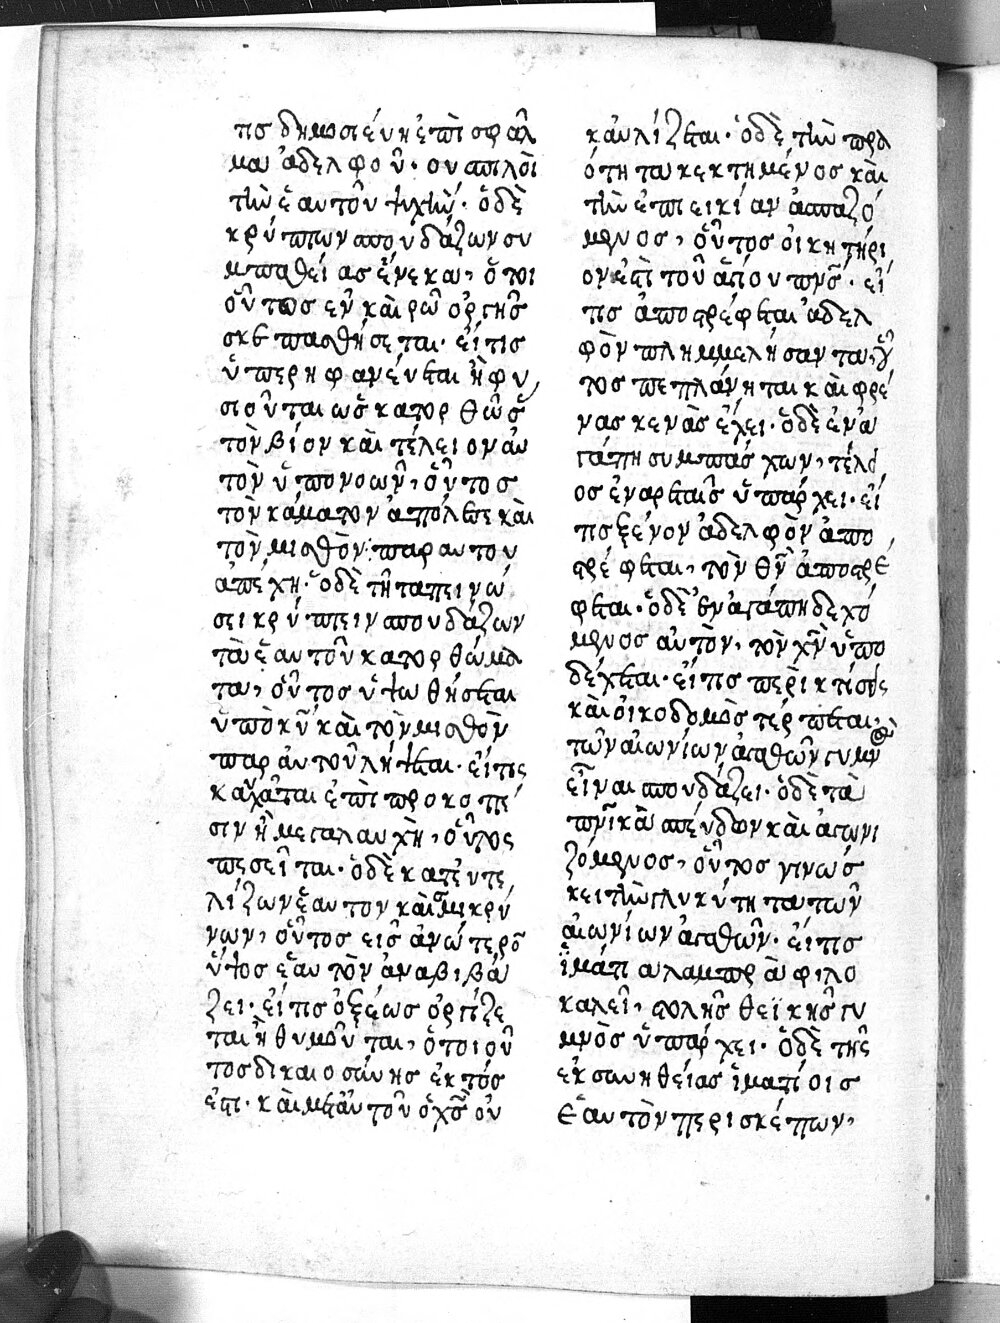 τις δημοσιεύει ἐπὶ σφάλ
μα ἀδελφοῦ· οὐ ἀπολεῖ
τὴν ἑαυτοῦ ψυχήν· ὁ δὲ
κρύπτων σπουδάζων συ
μπαθείας ἕνεκα, ὁ τοι
οῦτος ἐν καιρῶ ὀργῆς
σκεπασθήσεται· εἴ τις
ὑπερηφανεύεται ἢ φυ
σιοῦται ὡς κατορθῶς
τὸν βίον καὶ τέλειον αὐ
τὸν ὑπονοῶν, οὗτος
τὸν κάματον ἀπόλεσε καὶ
τὸν μισθὸν παρ αυτου
ἀπέχη· ὁ δὲ τῆ ταπεινώ
σει κρύπτειν σπουδάζων
τὰ ἑαυτοῦ κατορθώμα
τα, οὗτος ὑψωθήσεται
ὑπὸ κυ καὶ τὸν μισθὸν
παρ αὐτοῦ λήψεται· εἴ τις
καυχᾶται ἐπὶ προκοπή
σιν ἢ μεγαλαυχῆ, οὗτος
πεσεῖται· ὁ δὲ κατευτε
λίζων ἑαυτον καὶ σμικρύ
νων, οὗτος εἰς ἀνώτερον
ὕψος ἑαυτὸν ἀναβιβά
ζει· εἴ τις ὀξέως ὀργίζε
ται ἢ θυμοῦται, ὁ τοιοῦ
τος δικαιοσύνης ἐκτός
ἐστι· καὶ μετ αὐτοῦ ὁ χς οὐ
καὐλίζεται· ὁ δὲ τὴν πρα
ότητα κεκτημένος καὶ
τὴν ἐπιεικίαν ἀσπαζό
μενος, οὗτος οἰκητήρι
ον ἐστὶ τοῦ ἁγίου πνς· εἴ
τις ἀποστρέφεται ἀδελ
φὸν πλημμελήσαντα, οὗ
τος πεπλάνηται καὶ φρέ
νας κενὰς ἔχει· ὁ δὲ ἐν ἀ
γάπη συμπάσχων, τέλει
ος ἐν ἀρεταῖς ὑπάρχει· εἴ
τις ξένον ἀδελφὸν ἀπο
στρέφεται, τὸν θν ἀποστρέ
φεται· ὁ δὲ ἐν ἀγάπη δεχό
μενος αὐτὸν, τὸν χν ὑπο
δέχεται· εἴ τις περὶ κτίσεις
καὶ οἰκοδομὰς τέρπεται,
τῶν αἰωνίων ἀγαθῶν γυμν
εἶναι σπουδάζει· ὁ δὲ τὰ
πνικὰ σπεύδων καὶ ἀγωνι
ζόμενος, οὗτος γινώσ
κει τὴν γλυκύτητα τῶν
αἰωνίων ἀγαθῶν· εἴ τις
ἱμάτια λαμπρὰ φιλο
καλεῖ, στολῆς θεϊκῆς γυ
μνὸς ὑπάρχει· ὁ δὲ τῆς
ἐκ συνηθείας ἱματίοις
ἑαυτὸν περισκέπων,